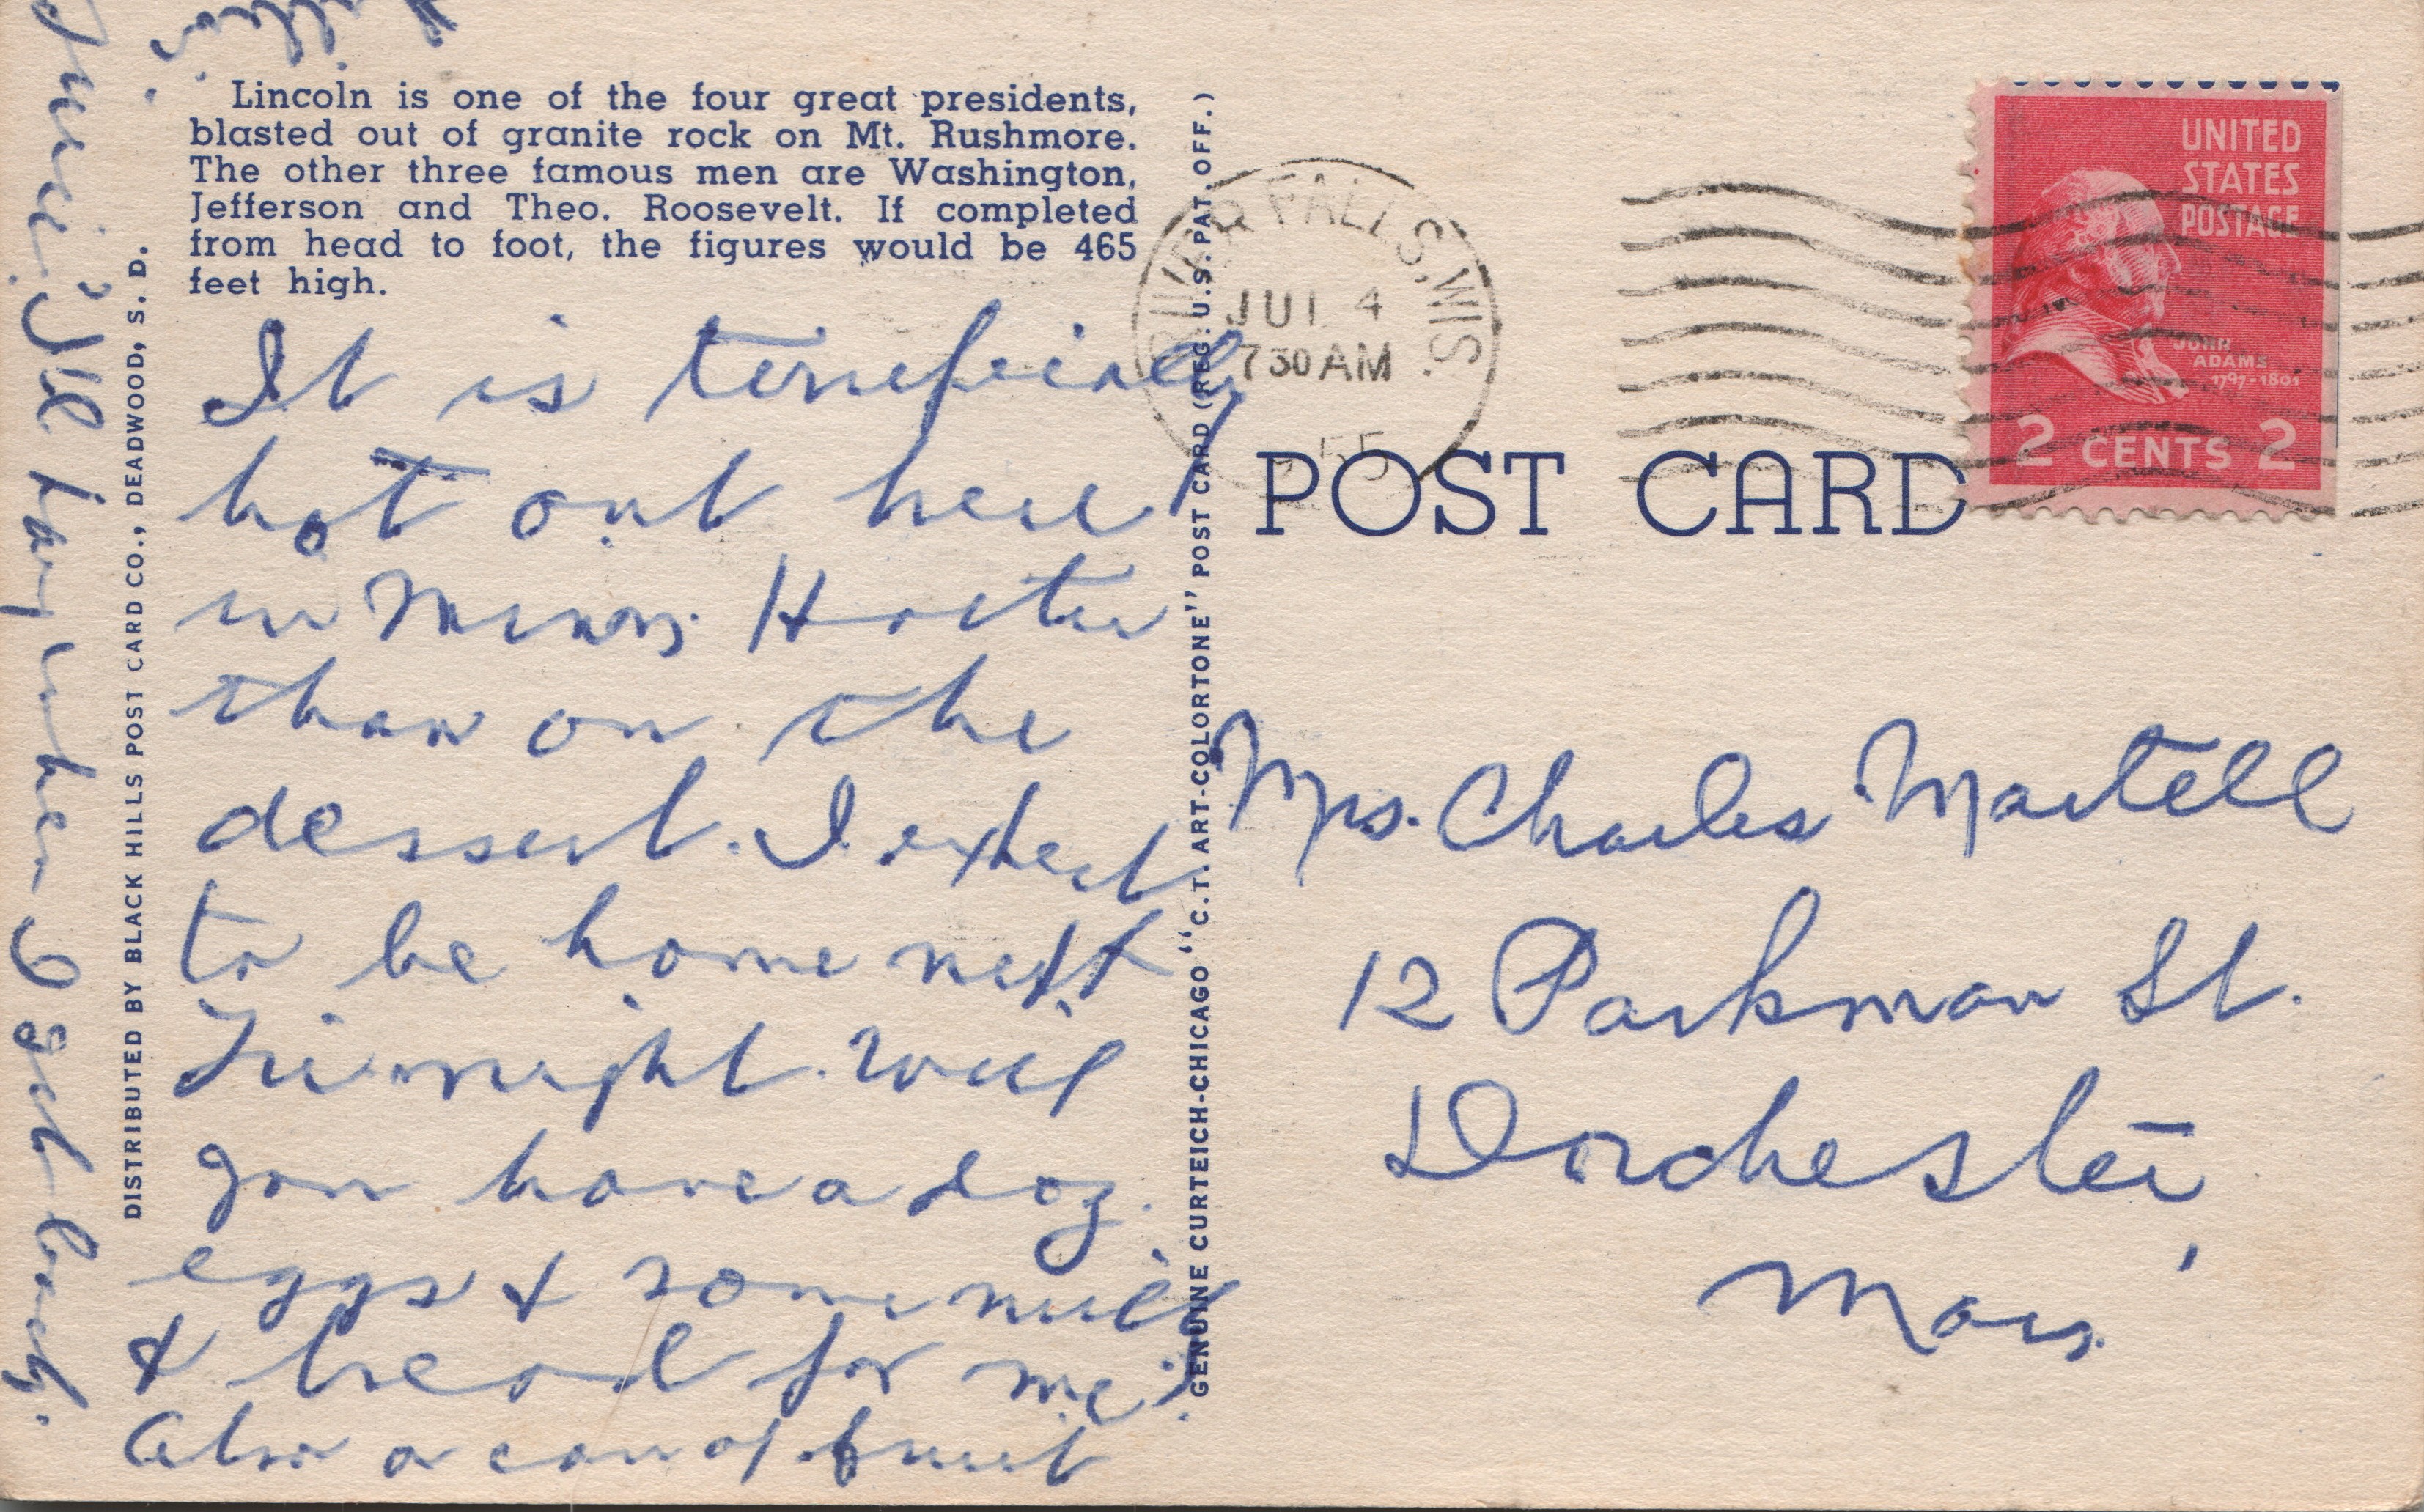 Lincoln is one of the four great presidents,
blasted out of granite rock on Mt. Rushmore.
The other three famous men are Washington,
Jefferson and Theo. Roosevelt. If completed
from head to foot, the figures would be 465
feet high.
It is
hot out here
in Minn. Hotter
than on the
dessert. I expect
to be home next
Fri. night. Will
you have a doz.
eggs & some milk
& bread for me?
Also a can of fruit
juice. I'll pay when I get back.
DISTRIBUTED BY BLACK HILLS POST CARD CO., DEADWOOD, S. D.
GENUINE CURTEICH-CHICAGO "C. T. ART-COLORTONE" POST CARD (REG. U.S. PAT. OFF.)
RIVER FALLS, WIS.
JUL 4
730 AM
55
UNITED
STATES
POSTAGE
JOHN
ADAMS
1797-1801
2 CENTS 2
POST CARD
Mrs. Charles Martell
12 Parkman St.
Dorchester,
Mass.